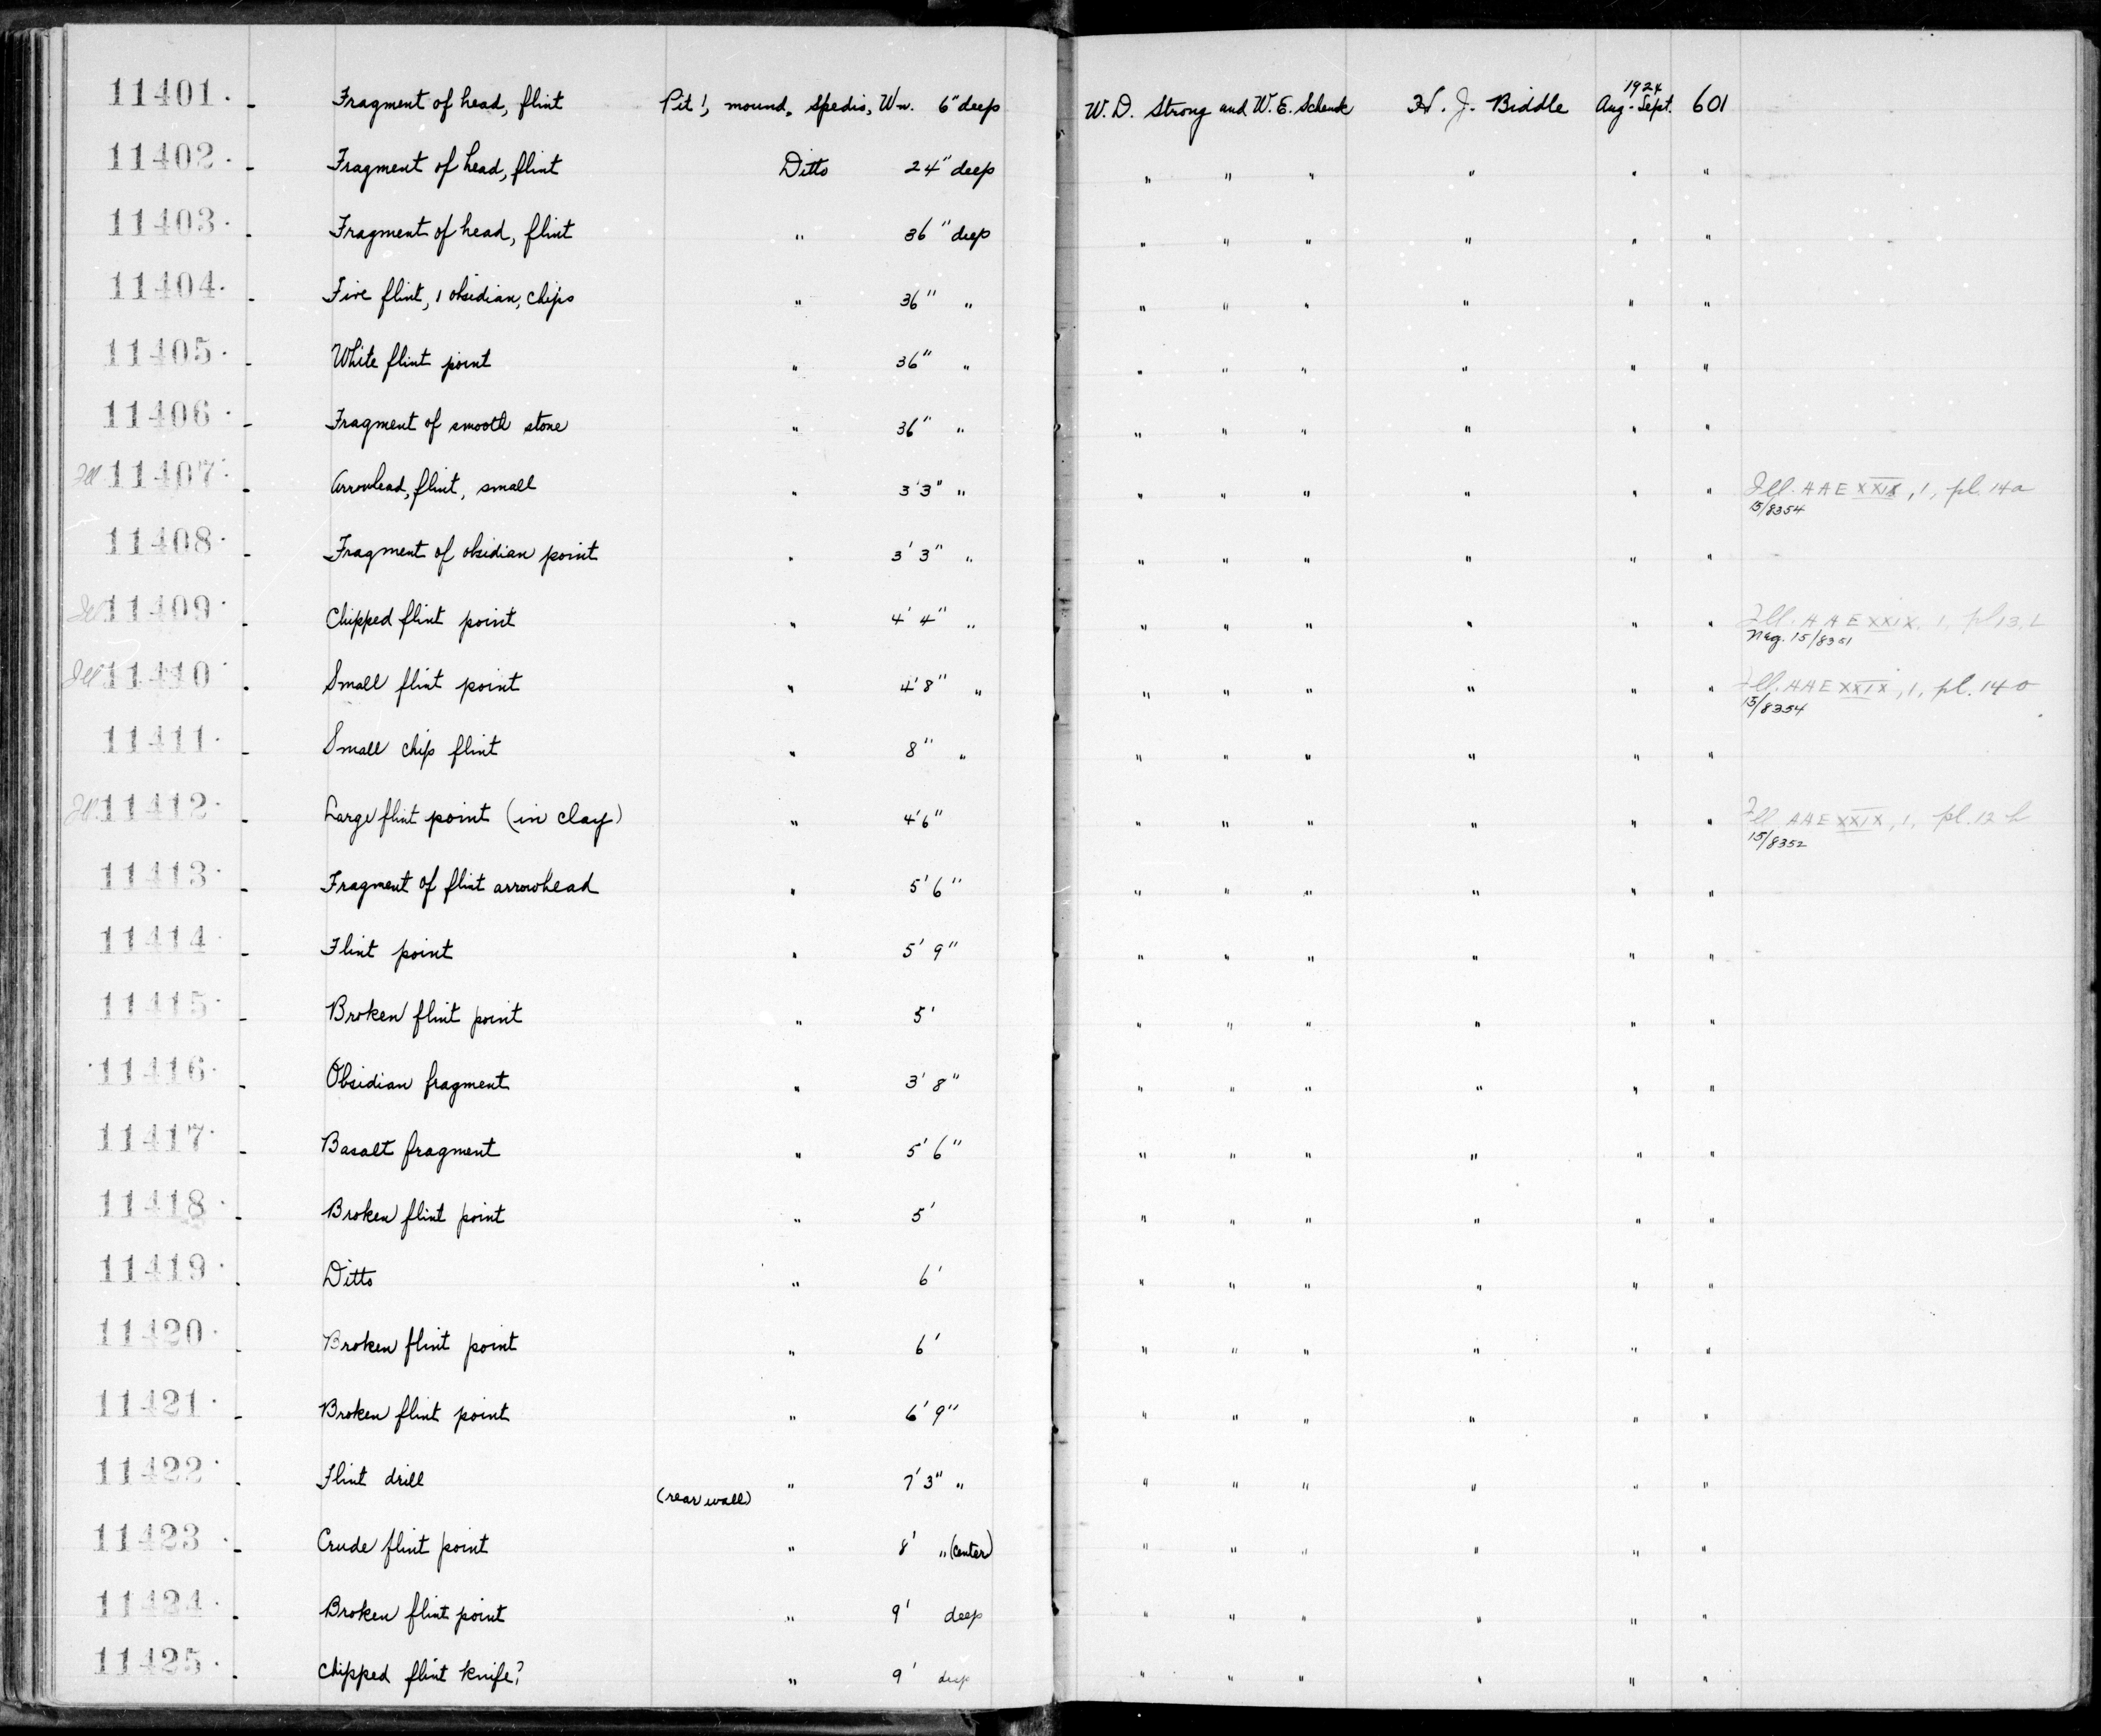 11401. - Fragment of head, flint Pit 1, mound, Spedis, Wn. 6" deep W. D. Strong and W. E. Schenck H. J. Biddle 1924 Aug-Sept. 601
11402. - Fragment of head, flint Ditto 24" deep " " " " " "
11403. - Fragment of head, flint " 36" deep " " " " " "
11404. - Five flint, 1 obsidian, chips " 36" " " " " " " "
11405. - White flint point " 36" " " " " " " "
11406. - Fragment of smooth stone " 36" " " " " " " "
Ill 11407. - Arrowhead, flint, small " 3'3" " " " " " " " Ill. AAE XXIX, 1, pl. 14a
15/8354
11408. - Fragment of obsidian point " 3' 3" " " " " " " "
Ill 11409. - Chipped flint point " 4' 4" " " " " " " " Ill. AAE XXIX, 1, pl 13,
Neg. 15/8351
Ill 11410 - Small flint point " 4'8" " " " " " " " Ill. AAE XXIX, 1, pl. 14 o
15/8354
11411. - Small chip flint " 8" " " " " " " "
Ill. 11412. - Large flint point (in clay) " 4'6" " " " " " " Ill AAE XXIX, 1, pl. 12 h
15/8352
11413. - Fragment of flint arrowhead " 5' 6" " " " " " "
11414 - Flint point " 5' 9" " " " " " "
11415. - Broken flint point " 5' " " " " " "
11416. - Obsidian fragment " 3' 8" " " " " " "
11417. - Basalt fragment " 5' 6" " " " " " "
11418. - Broken flint point " 5' " " " " " "
11419. - Ditto " 6' " " " " " "
11420. - Broken flint point " 6' " " " " " "
11421. - Broken flint point " 6' 9" " " " " " "
11422. - Flint drill " 7' 3" " " " " " " "
(rear wall)
11423. - Crude flint point " 8' " (center) " " " " " "
11424. - Broken flint point " 9' deep " " " " " "
11425. - Chipped flint knife? " 9' deep " " " " " "